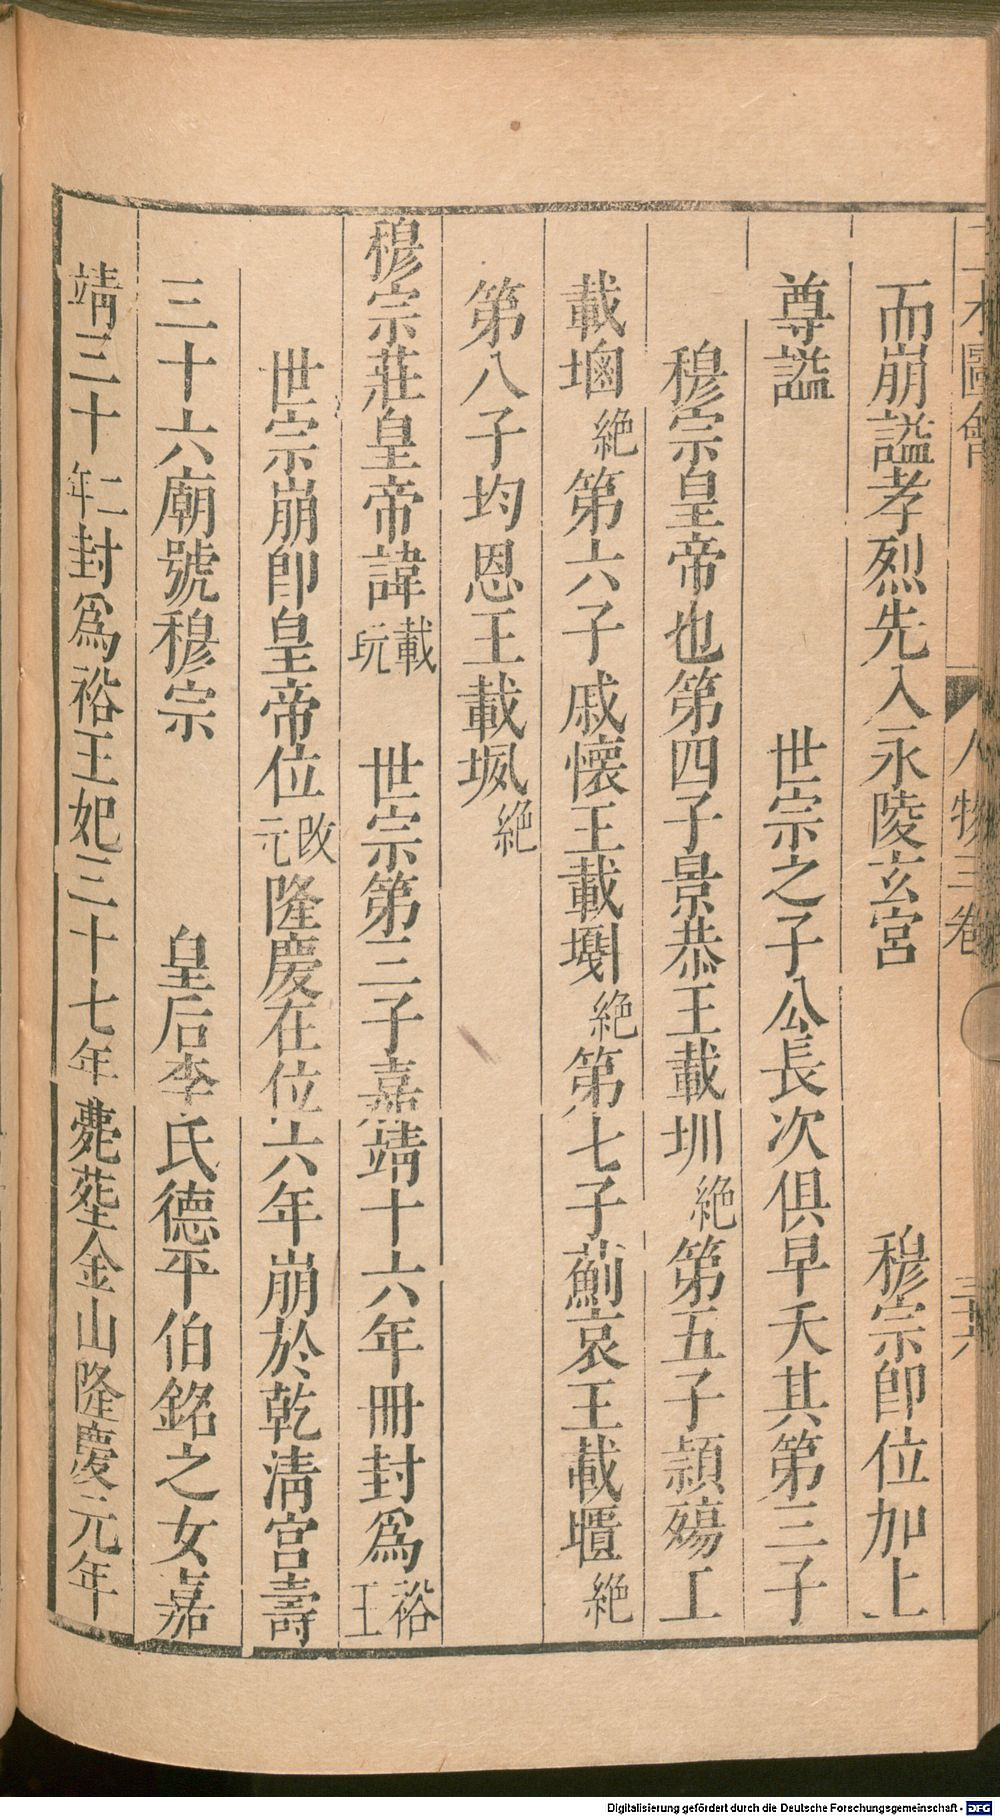 三才圖會 人物三卷 三十六
而崩謚孝烈先入永陵玄宮 穆宗卽位加上
尊謚 世宗之子八公長次俱早夭其第三子
穆宗皇帝也第四子景恭王載圳絕第五子潁殤王
載𡎚絕第六子戚懷王載㙺絕第七子薊哀王載㔳絕
第八子均恩王載㙸絕
穆宗莊皇帝諱載坃 世宗第三子嘉靖十六年冊封爲裕王
世宗崩卽皇帝位改元隆慶在位六年崩於乾淸宮壽
三十六廟號穆宗 皇后李氏德平伯銘之女嘉
靖三十二年封爲裕王妃三十七年薨塟金山隆慶元年
Digitalisierung gefördert durch die Deutsche Forschungsgemeinschaft - DFG